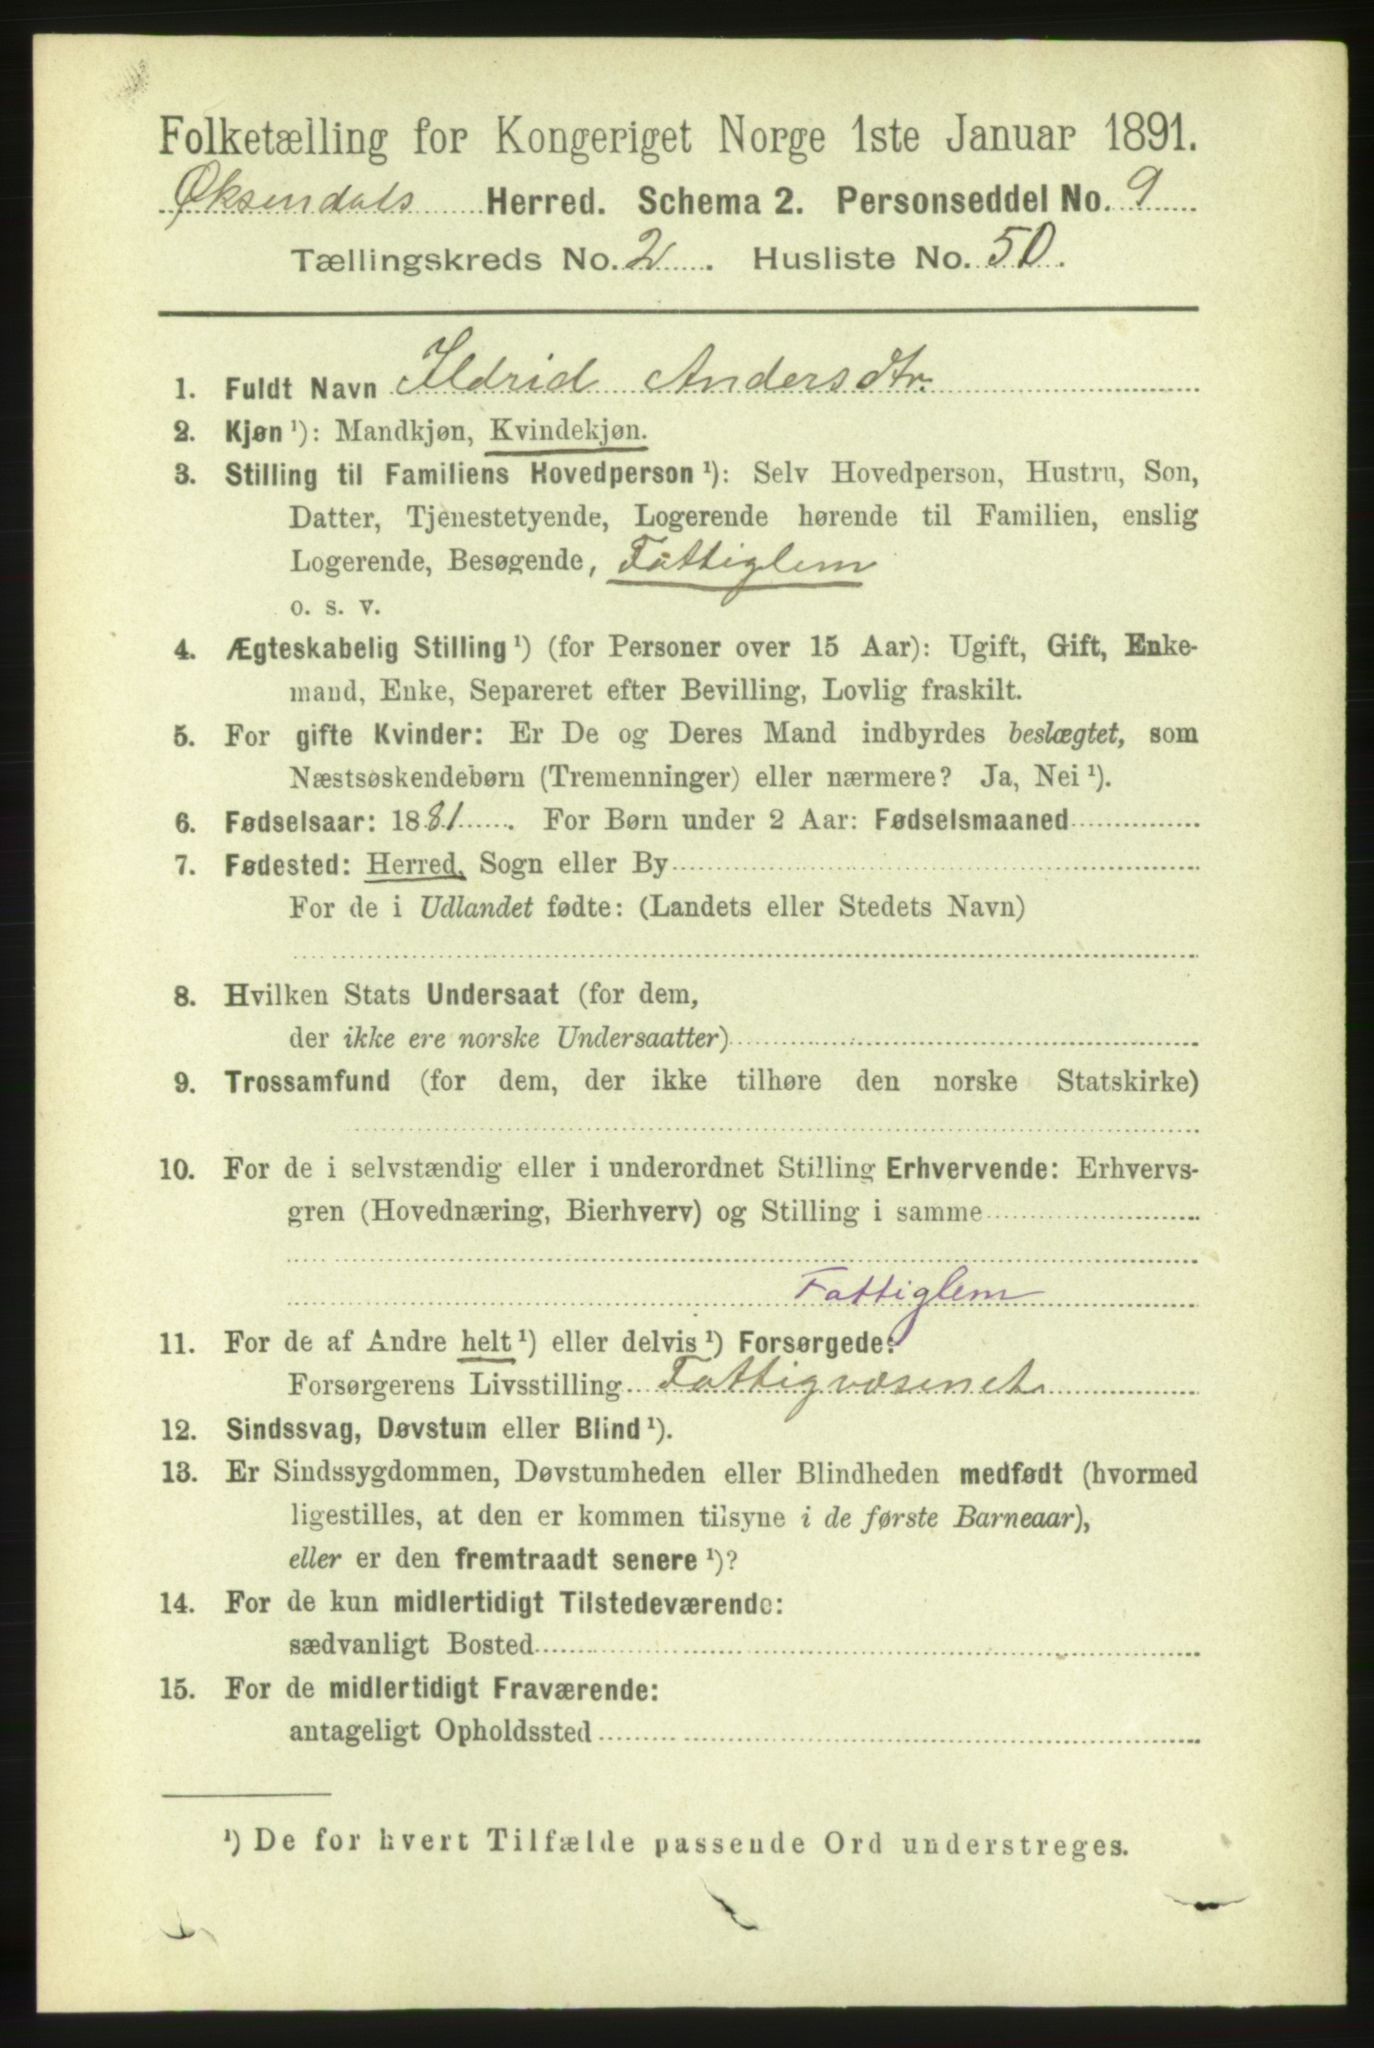 Folketælling for Kongeriget Norge 1ste Januar 1891.
Øksendals Herred. Schema 2. Personseddel No. 9
Tællingskreds No. 2. Husliste No. 50.
1. Fuldt Navn Ildrid Andersdtr.
2. Kjøn ¹): Mandkjøn, Kvindekjøn.
3. Stilling til Familiens Hovedperson ¹): Selv Hovedperson, Hustru, Søn,
Datter, Tjenestetyende, Logerende hørende til Familien, enslig
Logerende, Besøgende, Fattiglem
o. s. v.
4. Ægteskabelig Stilling ¹) (for Personer over 15 Aar): Ugift, Gift, Enke-
mand, Enke, Separeret efter Bevilling, Lovlig fraskilt.
5. For gifte Kvinder: Er De og Deres Mand indbyrdes beslægtet, som
Næstsøskendebørn (Tremenninger) eller nærmere? Ja, Nei ¹).
6. Fødselsaar: 1881. For Børn under 2 Aar: Fødselsmaaned
7. Fødested: Herred, Sogn eller By
For de i Udlandet fødte: (Landets eller Stedets Navn)
8. Hvilken Stats Undersaat (for dem,
der ikke ere norske Undersaatter)
9. Trossamfund (for dem, der ikke tilhøre den norske Statskirke)
10. For de i selvstændig eller i underordnet Stilling Erhvervende: Erhvervs-
gren (Hovednæring, Bierhverv) og Stilling i samme
Fattiglem
11. For de af Andre helt ¹) eller delvis ¹) Forsørgede:
Forsørgerens Livsstilling Fattigvæsenet
12. Sindssvag, Døvstum eller Blind ¹).
13. Er Sindssygdommen, Døvstumheden eller Blindheden medfødt (hvormed
ligestilles, at den er kommen tilsyne i de første Barneaar),
eller er den fremtraadt senere ¹)?
14. For de kun midlertidigt Tilstedeværende:
sædvanligt Bosted
15. For de midlertidigt Fraværende:
antageligt Opholdssted
¹) De for hvert Tilfælde passende Ord understreges.